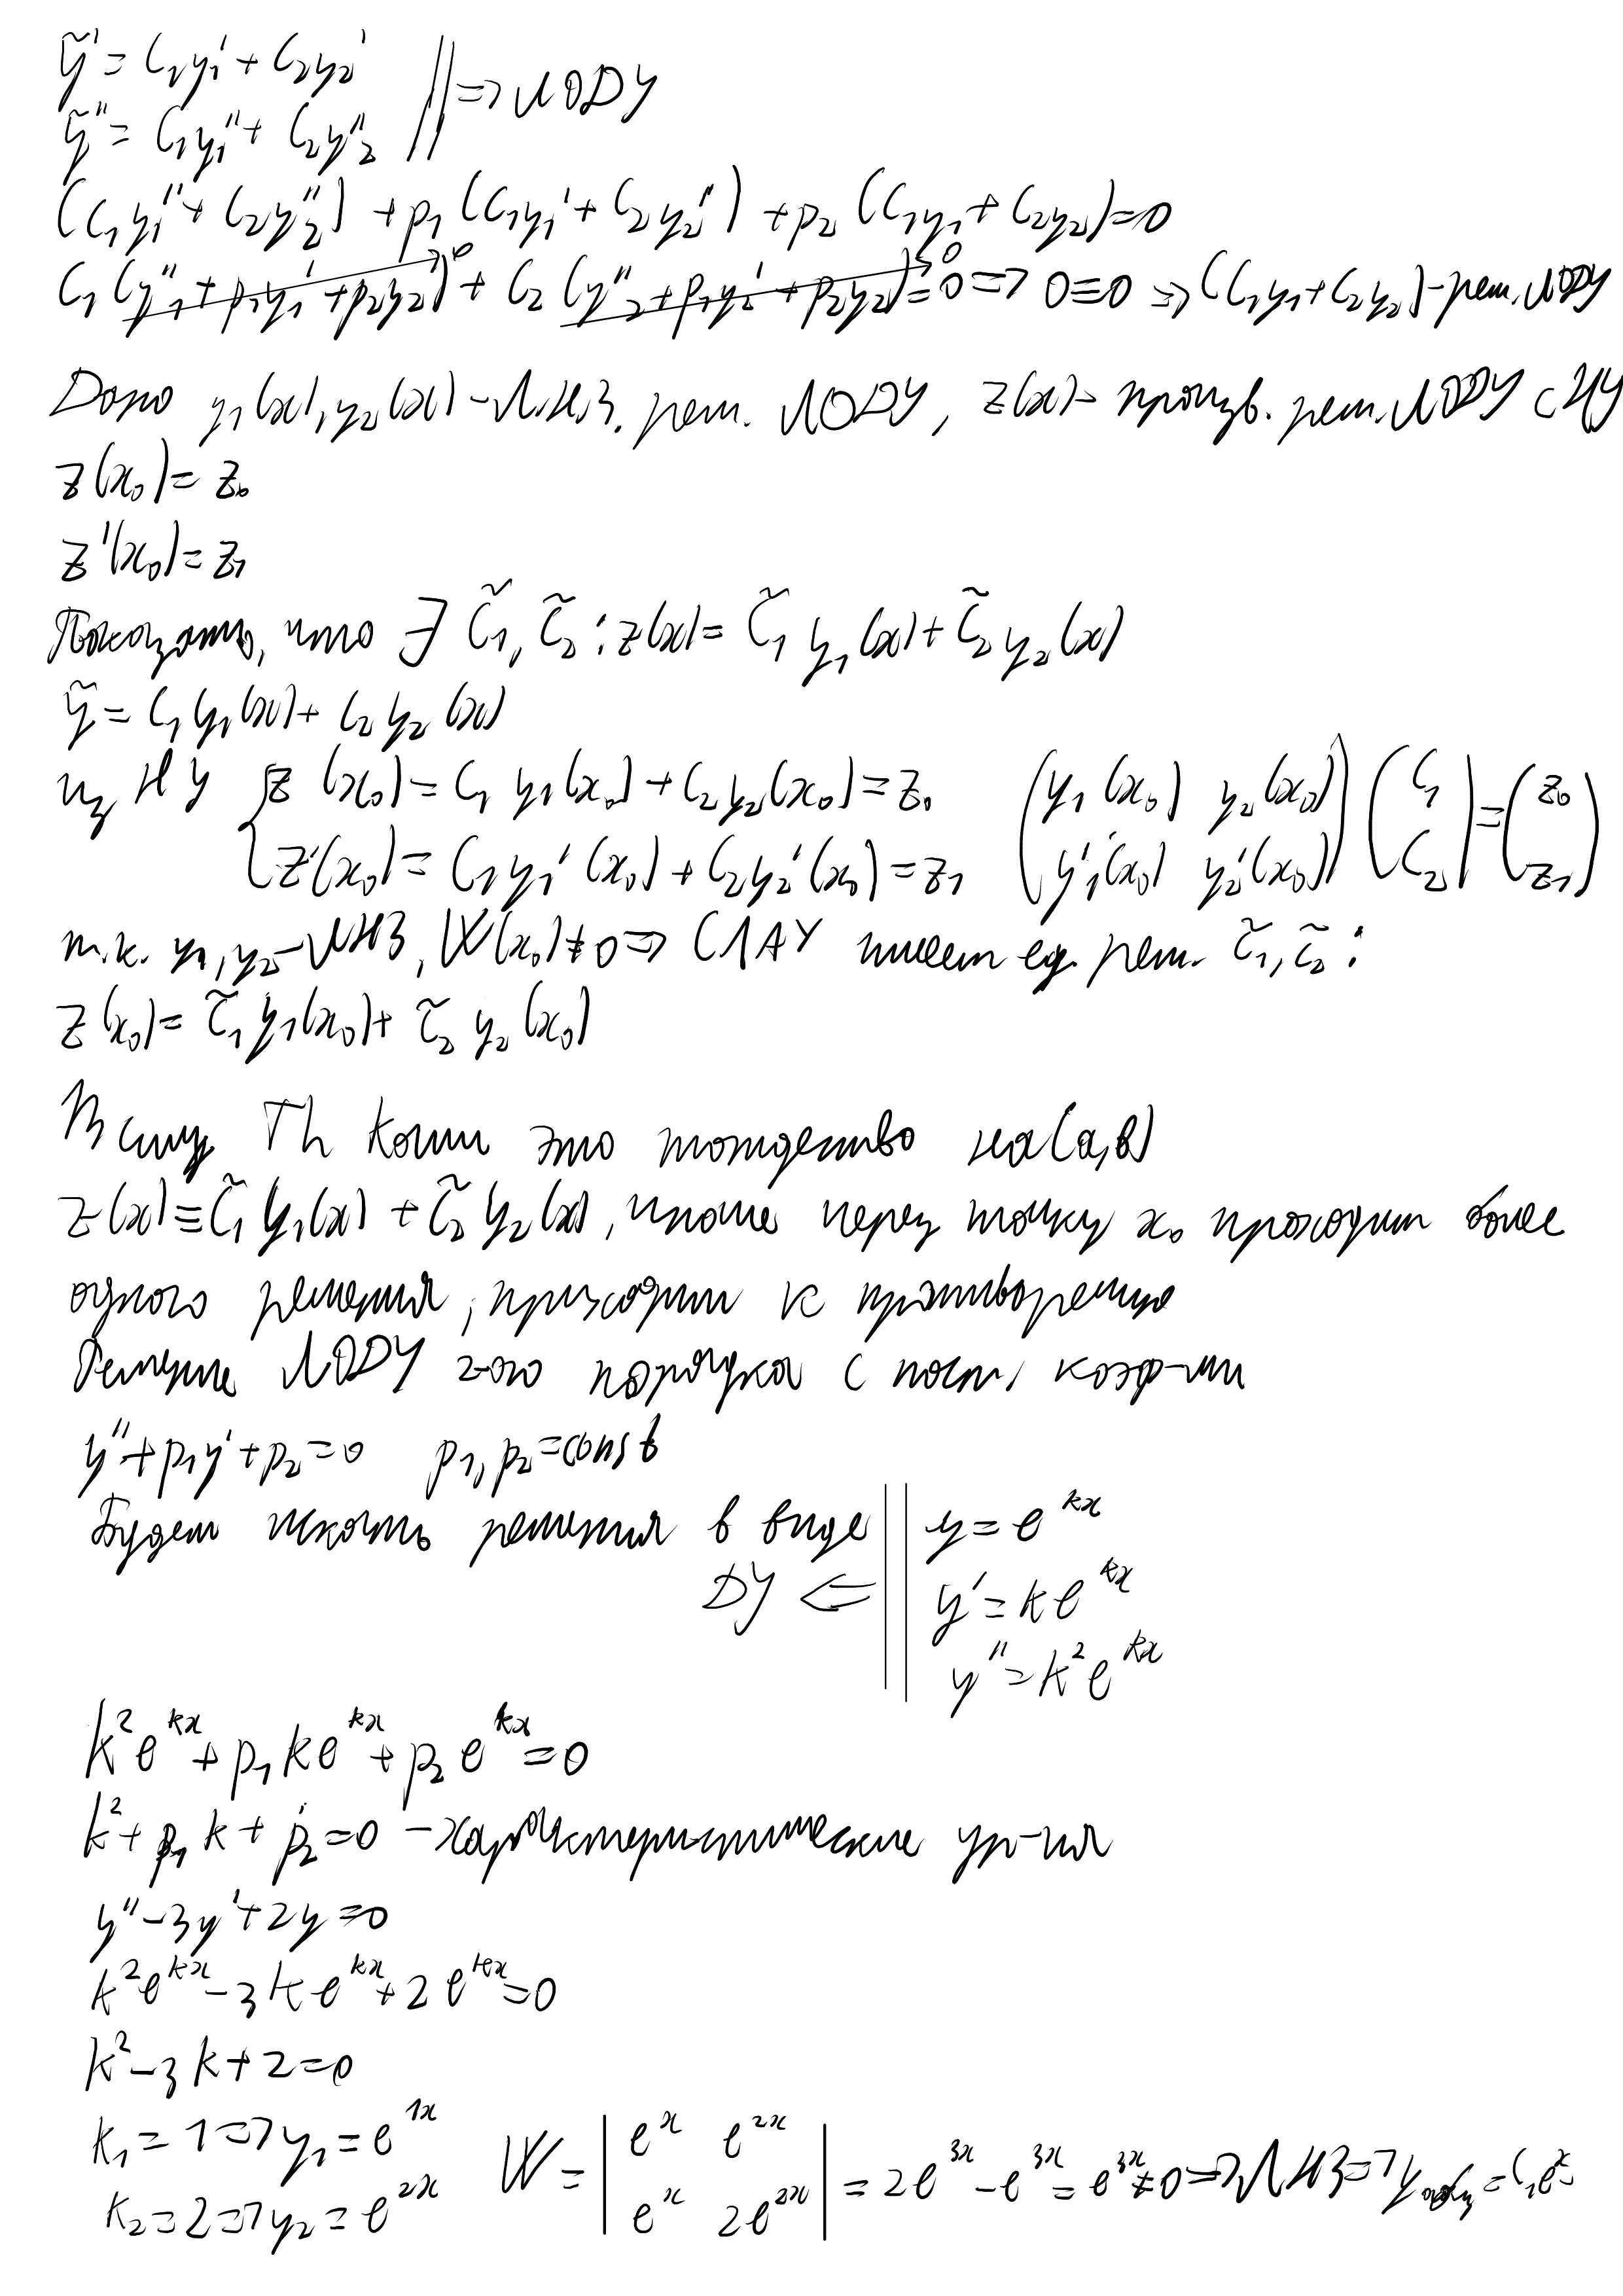 ỹ' = C₁y₁' + C₂y₂'
ỹ'' = C₁y₁'' + C₂y₂'' || => ЛОДУ
(C₁y₁'' + C₂y₂'') + p₁(C₁y₁' + C₂y₂') + p₂(C₁y₁ + C₂y₂) = 0
C₁(y₁'' + p₁y₁' + p₂y₂)→0 + C₂(y''₂ + p₁y₂' + p₂y₂)→0 = 0 => 0=0 => (C₁y₁ + C₂y₂) - реш. ЛОДУ
Дано y₁(x), y₂(x) - ЛНЗ. реш. ЛОДУ, z(x) - произв. реш. ЛОДУ с НУ
z(x₀) = z₀
z'(x₀) = z₁
Показать, что ∃ C̃₁, C̃₂ : z(x) = C̃₁ y₁(x) + C̃₂ y₂(x)
ỹ = C₁y₁(x) + C₂y₂(x)
из НУ { z(x₀) = C₁ y₁(x₀) + C₂y₂(x₀) = z₀ (y₁(x₀) y₂(x₀)) (C₁) = (z₀)
z'(x₀) = C₁y₁'(x₀) + C₂y₂'(x₀) = z₁ (y'₁(x₀) y₂'(x₀)) (C₂) (z₁)
т.к. y₁, y₂ - ЛНЗ, W(x₀) ≠ 0 => СЛАУ имеет ед. реш. C̃₁, C̃₂ :
z(x₀) = C̃₁ y₁(x₀) + C̃₂ y₂(x₀)
В силу Th Коши это тождество на (a,b)
z(x) ≡ C̃₁ y₁(x) + C̃₂ y₂(x), иначе через точку x₀ проходит более
одного решения, приходим к противоречию
Решение ЛОДУ 2-ого порядка с пост. коэф-ми
y'' + p₁y' + p₂ = 0 p₁, p₂ = const
Будем искать решения в виде || y = e^kx
ДУ <= || y' = ke^kx
y'' = k²e^kx
k²e^kx + p₁ke^kx + p₂e^kx = 0
k² + p₁k + p₂ = 0 - характеристическое ур-ия
y'' - 3y' + 2y = 0
k²e^kx - 3ke^kx + 2e^kx = 0
k² - 3k + 2 = 0
k₁ = 1 => y₁ = e^1x W = | e^x e^2x |
k₂ = 2 => y₂ = e^2x | e^x 2e^2x | = 2e^3x - e^3x = e^3x ≠ 0 => ЛНЗ => y = C₁e^x